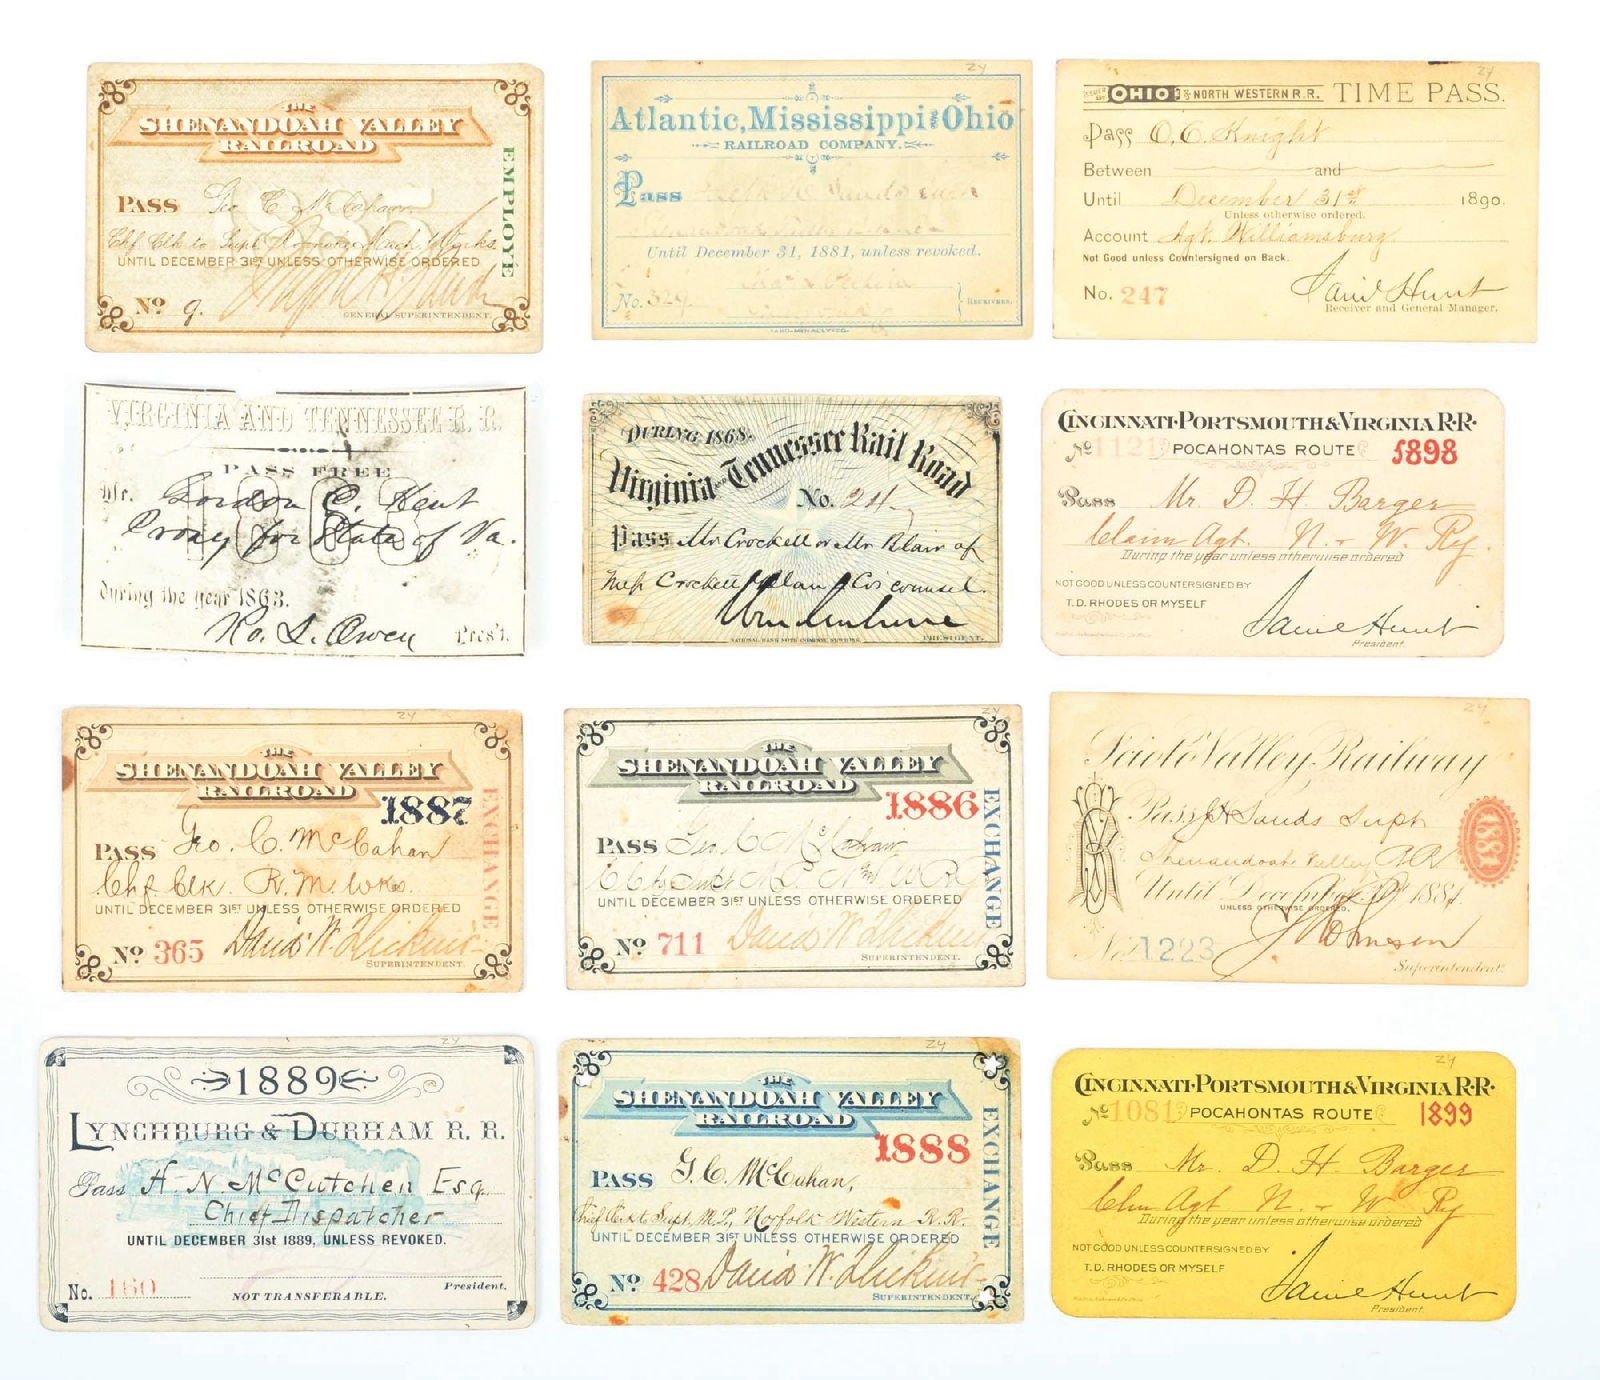 THE
SHENANDOAH VALLEY
RAILROAD
EMPLOYE
PASS Geo C McCahan
Chf Clk to Supt Roanoke Mach Works
UNTIL DECEMBER 31ST UNLESS OTHERWISE ORDERED
No 9.
GENERAL SUPERINTENDENT.
24
Atlantic, Mississippi and Ohio
RAILROAD COMPANY.
Pass
Until December 31, 1881, unless revoked.
No. 329
RECEIVERS.
RAND-MCNALLY
24
ISSUED BY OHIO & NORTH WESTERN R.R. TIME PASS.
Pass O. C. Knight
Between and
Until December 31st 1890.
Unless otherwise ordered.
Account Agt. Williamsburg
Not Good unless Countersigned on Back.
No. 247 Samuel Hunt
Receiver and General Manager.
VIRGINIA AND TENNESSEE R. R.
PASS FREE
Mr. Gordon C. Kent
Proxy for State of Va.
during the year 1863.
Ro. L. Owen Pres't.
DURING 1868.
Virginia and Tennessee Rail Road
No. 24
Pass Mr Crockett or Mr Blair of
Mess Crockett & Co's counsel.
NATIONAL BANK NOTE COMPANY, NEW YORK PRESIDENT.
CINCINNATI·PORTSMOUTH & VIRGINIA R·R·
No 1121 POCAHONTAS ROUTE 1898
Pass Mr. D. H. Barger
Claim Agt. N. - W. Ry.
During the year unless otherwise ordered
NOT GOOD UNLESS COUNTERSIGNED BY
T. D. RHODES OR MYSELF
Samuel Hunt
President.
24
THE
SHENANDOAH VALLEY
RAILROAD
1887
EXCHANGE
PASS Geo. C. McCahan
Chf Clk. R. M. Wks.
UNTIL DECEMBER 31ST UNLESS OTHERWISE ORDERED
No 365 David W. Flickwir
SUPERINTENDENT.
24
THE
SHENANDOAH VALLEY
RAILROAD
1886
EXCHANGE
PASS Geo C McCahan
UNTIL DECEMBER 31ST UNLESS OTHERWISE ORDERED
No 711 David W. Flickwir
SUPERINTENDENT.
24
Scioto Valley Railway
Pass J H Sands Supt
Shenandoah Valley RR
1881
Until December 31st 1881.
UNLESS OTHERWISE ORDERED.
No. 1223
Superintendent.
24
1889
LYNCHBURG & DURHAM R. R.
Pass H. N. McCutchen Esq.
Chief Dispatcher
UNTIL DECEMBER 31st 1889, UNLESS REVOKED.
No. 160 President.
NOT TRANSFERABLE.
24
THE
SHENANDOAH VALLEY
RAILROAD
1888
EXCHANGE
PASS G. C. McCahan,
Chief Clk to Supt. M.P., Norfolk Western R.R.
UNTIL DECEMBER 31ST UNLESS OTHERWISE ORDERED
No 428 David W. Flickwir
SUPERINTENDENT.
24
CINCINNATI·PORTSMOUTH & VIRGINIA R·R·
No 1081 POCAHONTAS ROUTE 1899
Pass Mr. D. H. Barger
Clm Agt N. - W Ry
During the year unless otherwise ordered
NOT GOOD UNLESS COUNTERSIGNED BY
T. D. RHODES OR MYSELF
Samuel Hunt
President.